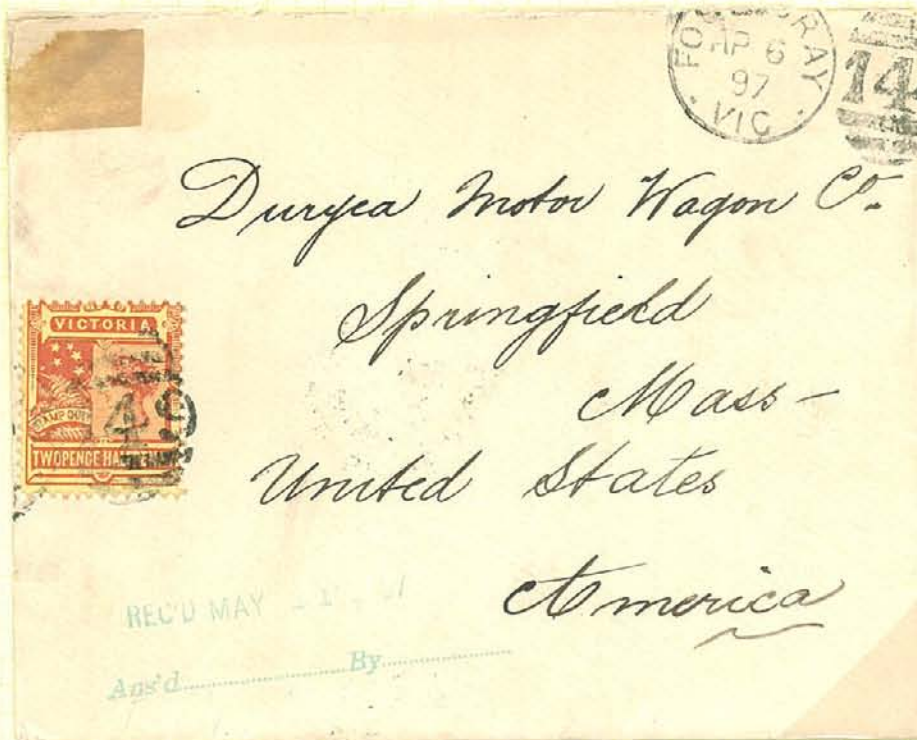 AP 6
97
VIC
14
Duryea Motor Wagon Co.
Springfield
Mass-
United States
America
VICTORIA
STAMP DUTY
149
TWOPENCE
REC'D MAY
Ans'd By